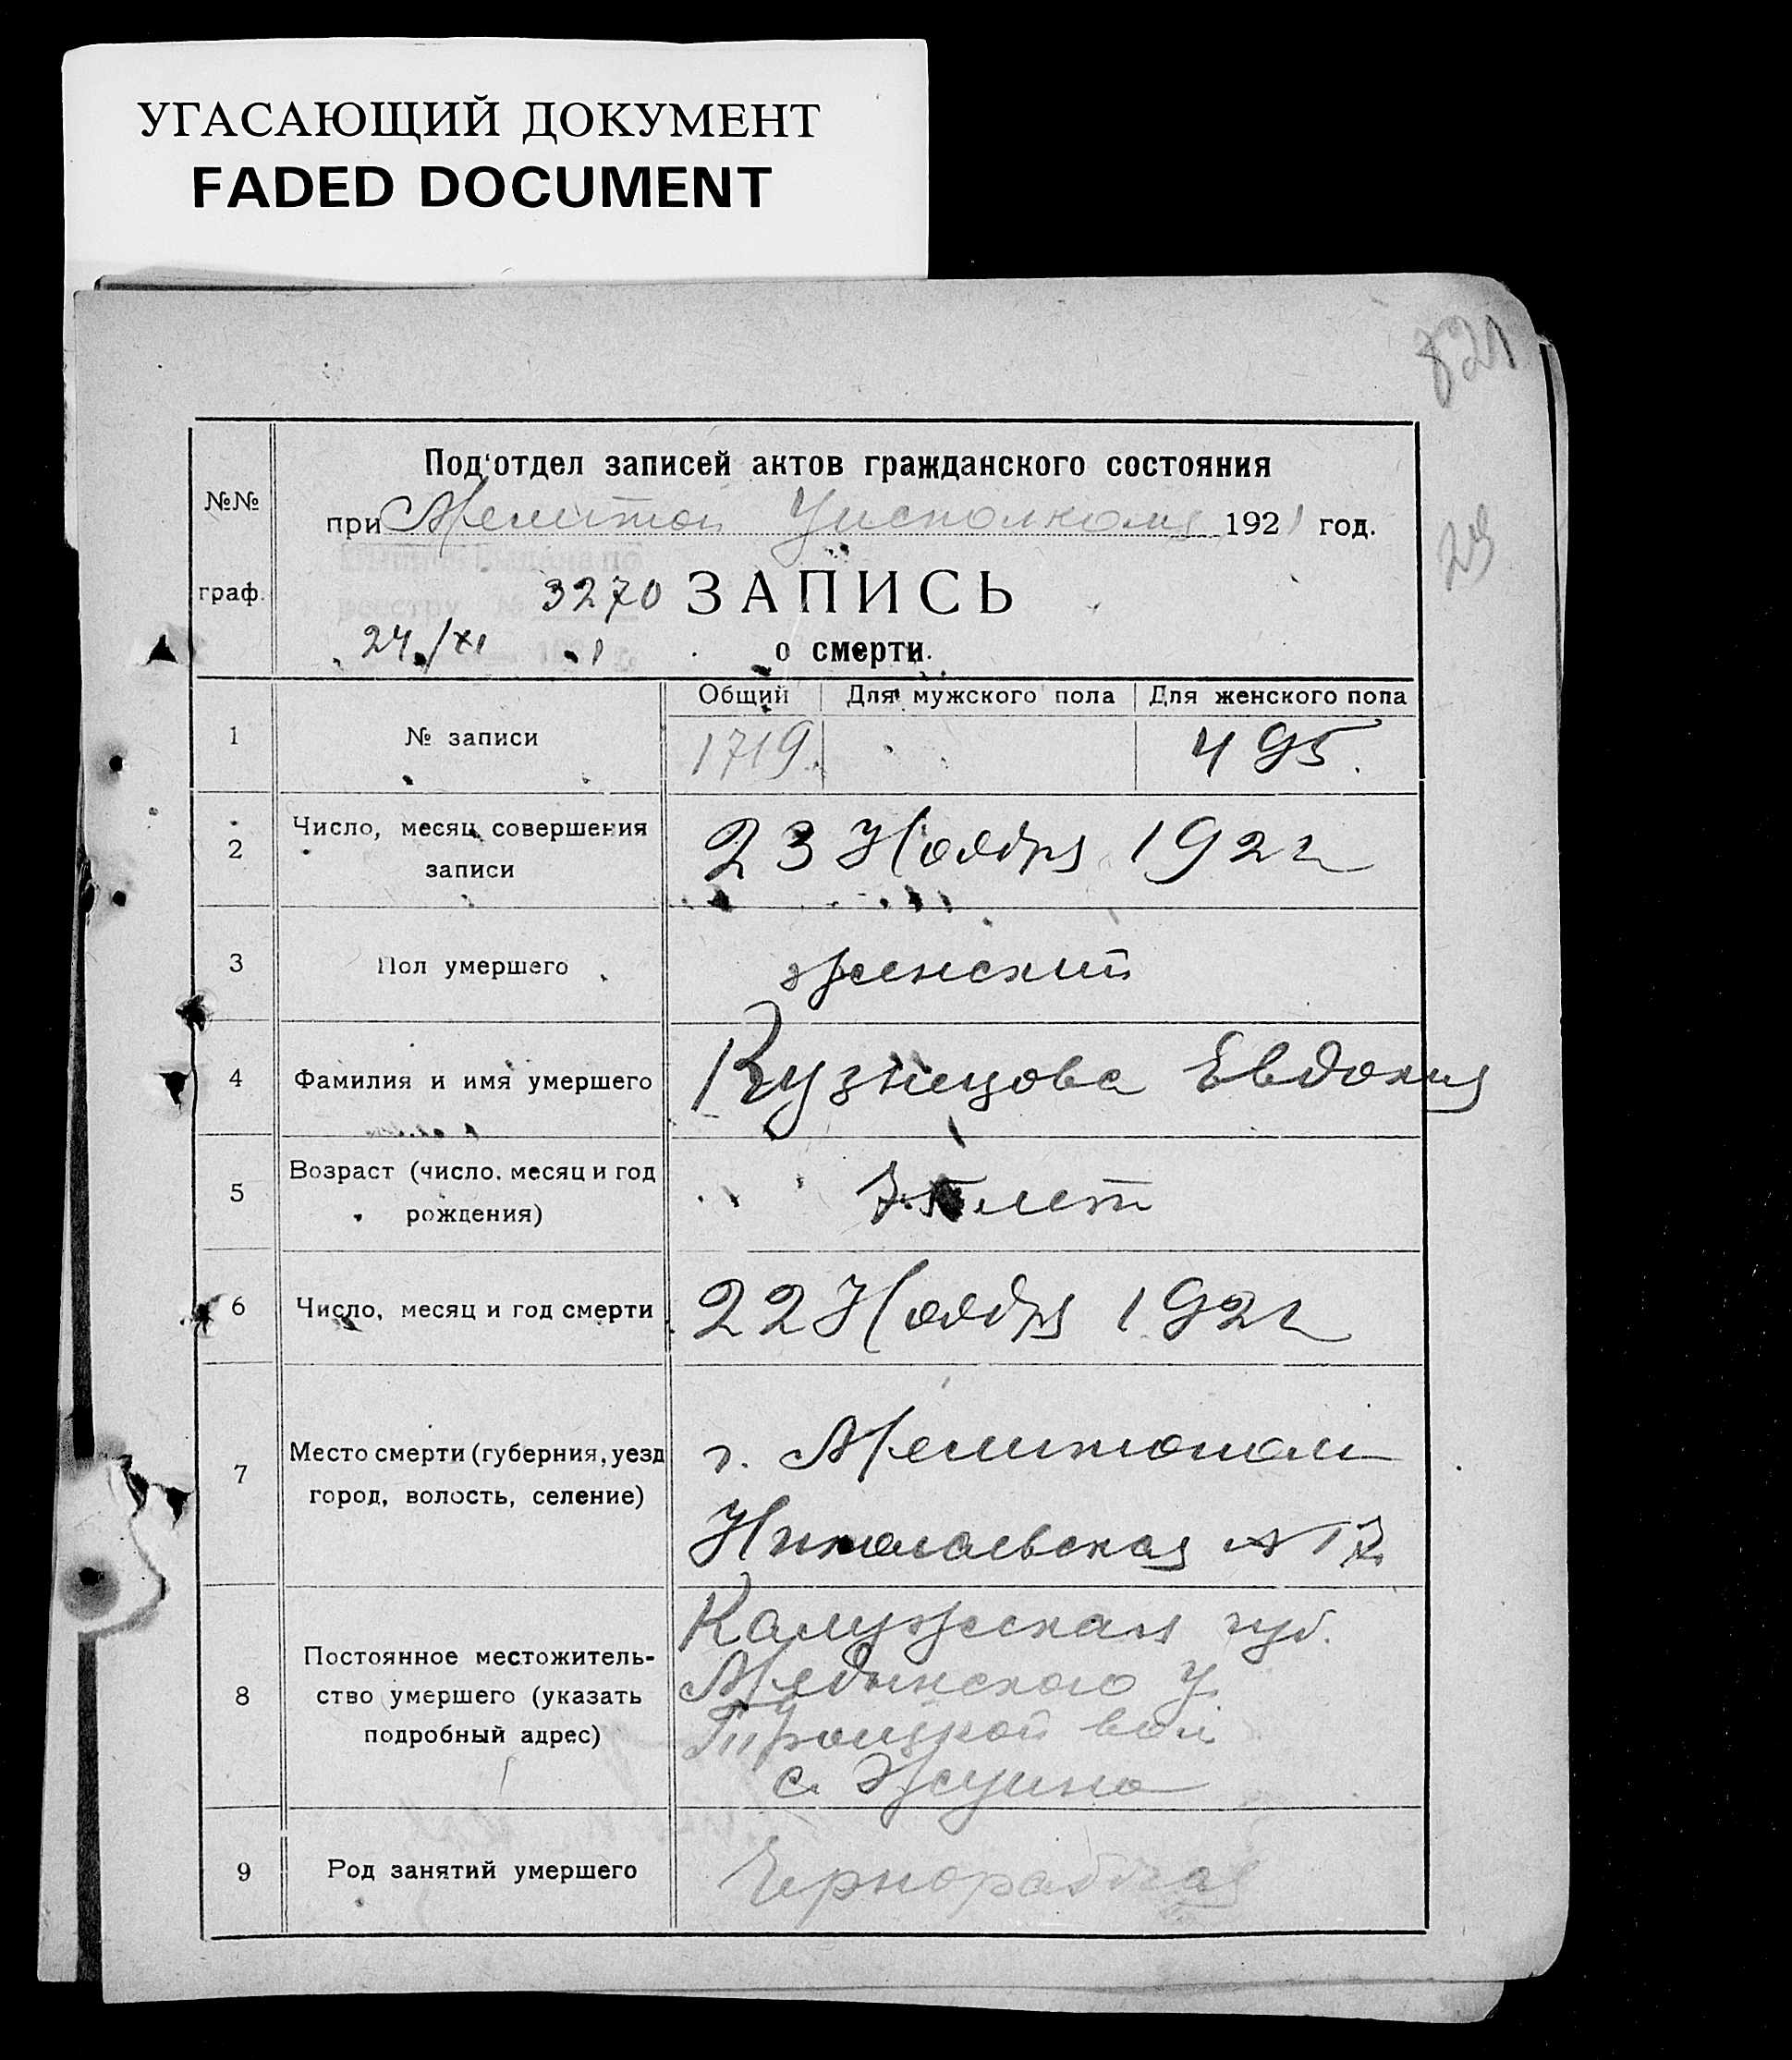 УГАСАЮЩИЙ ДОКУМЕНТ
FADED DOCUMENT
821
29
№№
граф.
Под'отдел записей актов гражданского состояния
при Мелитоп Уисполкома 1921 год.
3270 ЗАПИСЬ
24/XI 1
о смерти.
Общий Для мужского пола Для женского пола
1 № записи 1719. 495.
2 Число, месяц совершения
записи
23 Ноября 1921
3 Пол умершего женский
4 Фамилия и имя умершего Кузнецова Евдокия
5 Возраст (число, месяц и год
рождения)
лет
6 Число, месяц и год смерти 22 Ноября 1921
7 Место смерти (губерния, уезд
город, волость, селение)
г. Мелитополь
Николаевская № 17
8 Постоянное местожитель-
ство умершего (указать
подробный адрес)
Калужская губ.
Медынского у.
Троицкой вол
с.
9 Род занятий умершего Чернорабочая